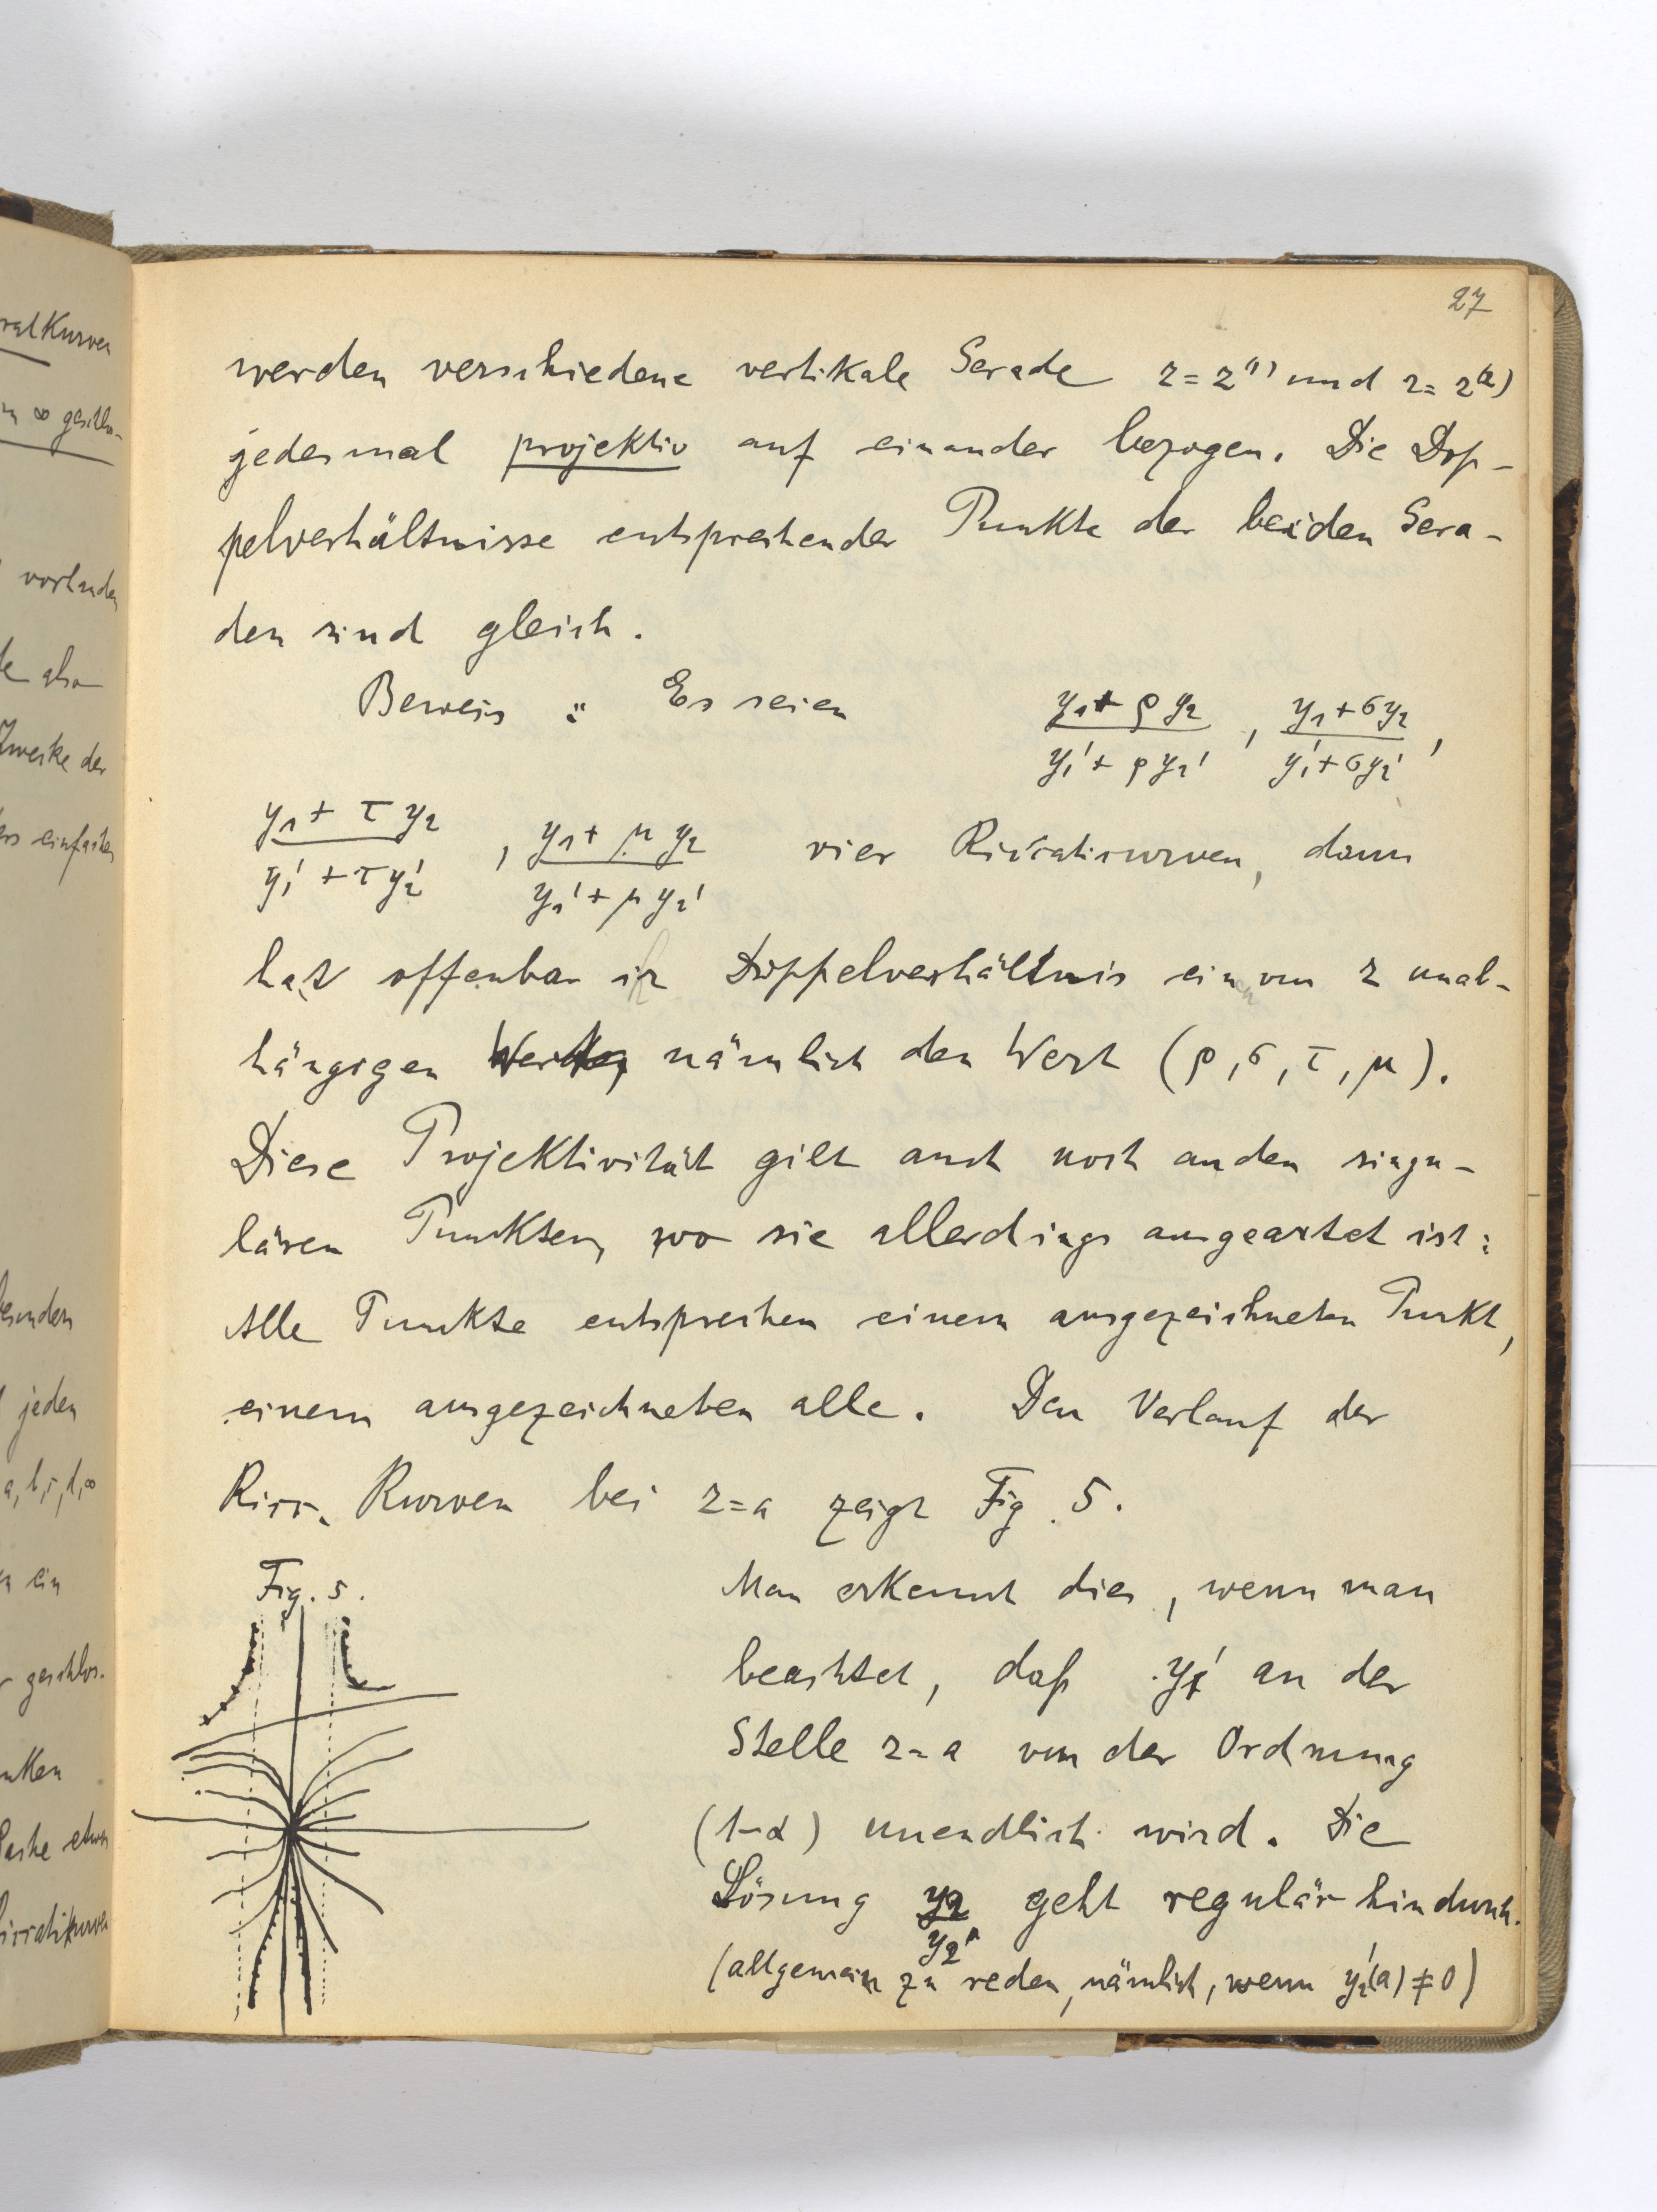 27
werden verschiedene vertikale Gerade z = z⁽¹⁾ und z = z⁽²⁾
jedesmal projektiv auf einander bezogen. Die Dop-
pelverhältnisse entsprechender Punkte der beiden Gera-
den sind gleich.
Beweis: Es seien (y₁ + ρ y₂)/(y₁' + ρ y₂'), (y₁ + σ y₂)/(y₁' + σ y₂'),
(y₁ + τ y₂)/(y₁' + τ y₂'), (y₁ + μ y₂)/(y₁' + μ y₂') vier Riccaticurven, dann
hat offenbar ihr Doppelverhältnis einen von z unab-
hängigen nämlich den Wert (ρ, σ, τ, μ).
Diese Projektivität gilt auch noch an den singu-
lären Punkten, wo sie allerdings ausgeartet ist:
Alle Punkte entsprechen einem ausgezeichneten Punkt,
einem ausgezeichneten alle. Den Verlauf der
Ricc. Kurven bei z = a zeigt Fig. 5.
Fig. 5.
Man erkennt dies, wenn man
beachtet, daß y₁' an der
Stelle z = a von der Ordnung
(1-α) unendlich wird. Die
Lösung y₂/y₂' geht regulär hindurch.
(allgemein zu reden, nämlich, wenn y₂'(a) ≠ 0)
ralkurven
∞ geschlos-
vorhanden
also
Zwecke der
einfaches
jeden
a, b, c, d, ∞
ein
geschlos-